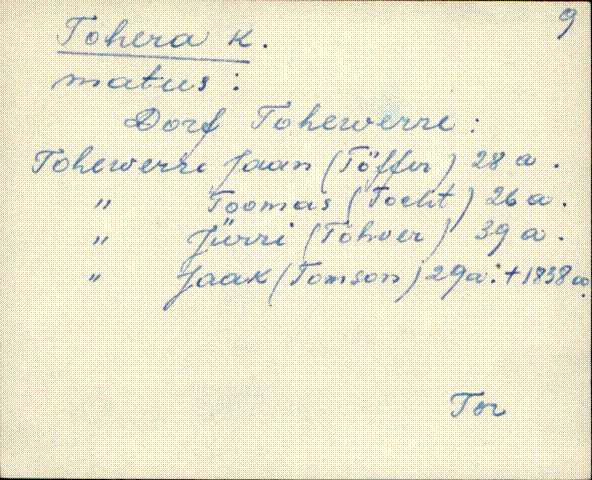 9
Tohera k.
matus:
Dorf Tohewerre:
Tohewerre Jaan (Töffer) 28 a.
" Toomas (Tocht) 26 a.
" Jürri (Tohver) 39 a.
" Jaak (Tomson) 29 a. + 1838 a.
Tor